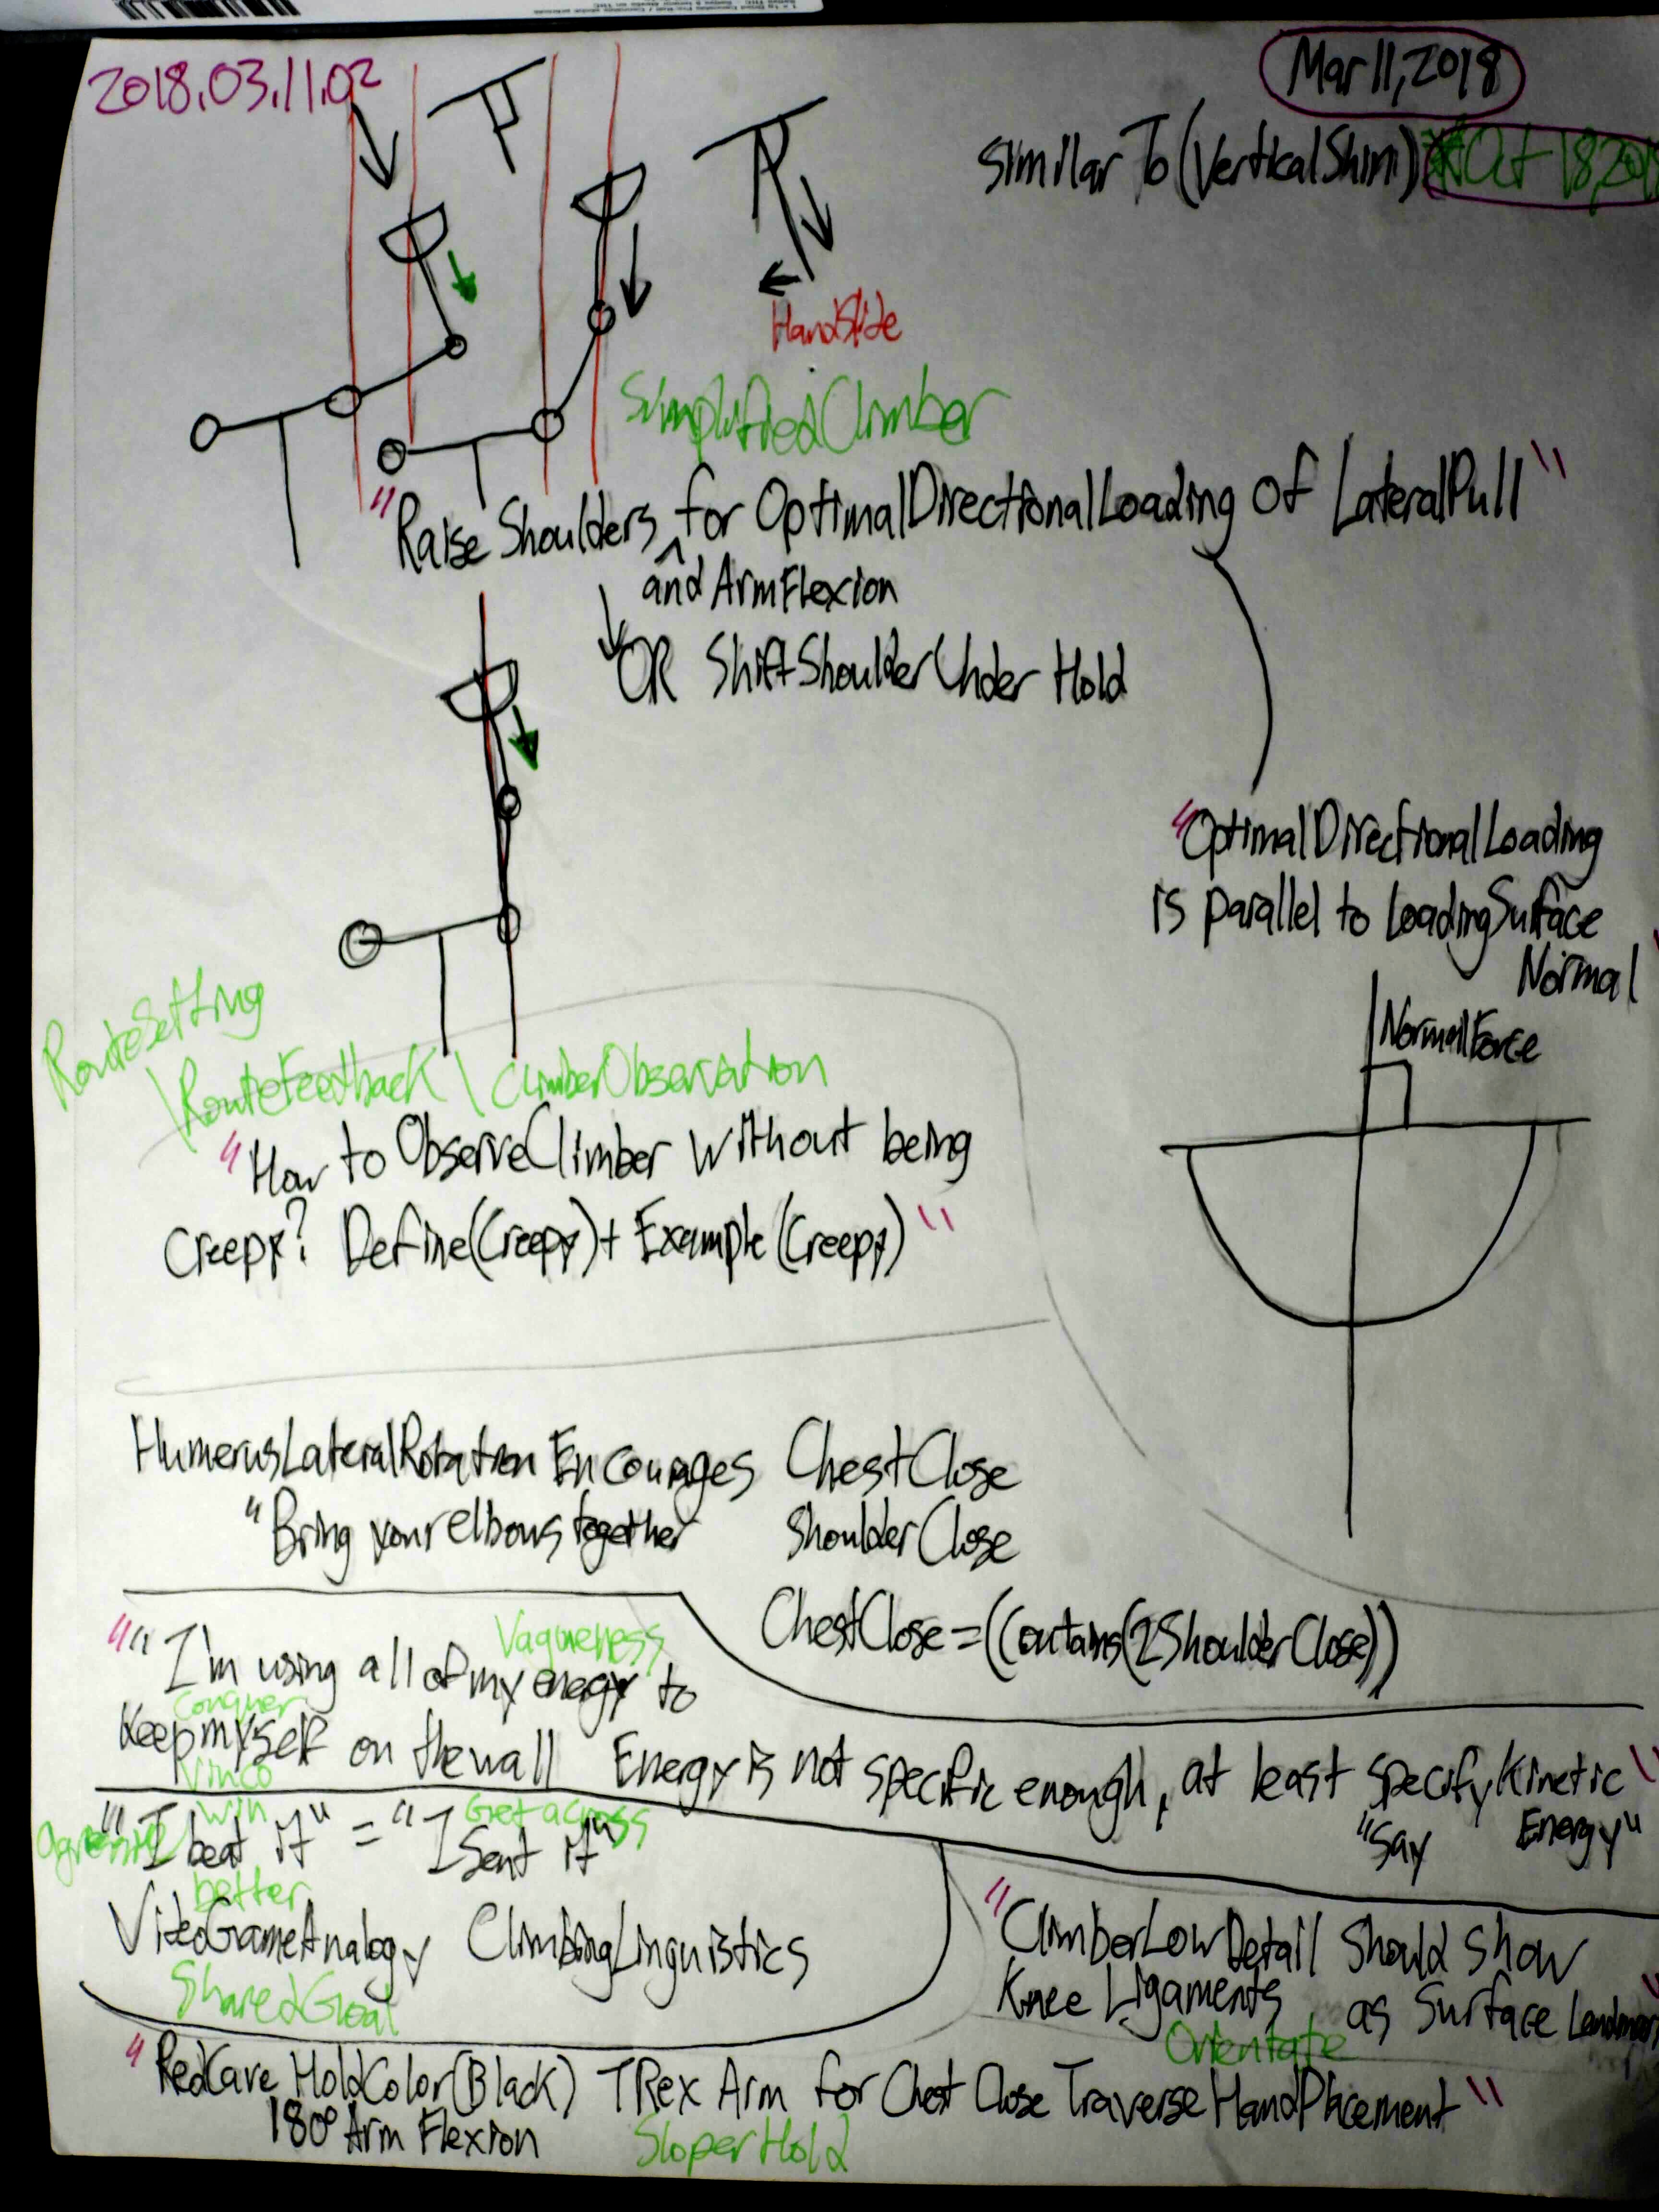 2018.03.11.02
Mar 11, 2018
Similar To (VerticalShirt)
Oct 18, 201
HandSlide
SimplifiedClimber
"Raise Shoulders for OptimalDirectionalLoading of LateralPull"
^
and ArmFlexion
OR ShiftShoulderUnder Hold
"OptimalDirectionalLoading
is parallel to LoadingSurface
Normal
NormalForce
RouteSetting
\RouteFeedback \ ClimberObservation
"How to ObserveClimber without being
Creepy? Define(Creepy) + Example (Creepy)"
HumerusLateralRotation Encourages ChestClose
"Bring your elbows together ShoulderClose
ChestClose = (Contains(2ShoulderClose))
Vagueness
"" I'm using all of my energy to
Conquer
Keep myself on the wall Energy is not specific enough, at least specify Kinetic"
"Say Energy"
Vinco
win Get across
"" I beat it" = "I Sent it"
better
VideoGameAnalogy ClimbingLinguistics
SharedGoal
"ClimberLowDetail Should Show
Knee Ligaments as Surface
Orientate
"RedCave HoldColor(Black) TRex Arm for Chest Close Traverse HandPlacement"
180° Arm Flexion SloperHold